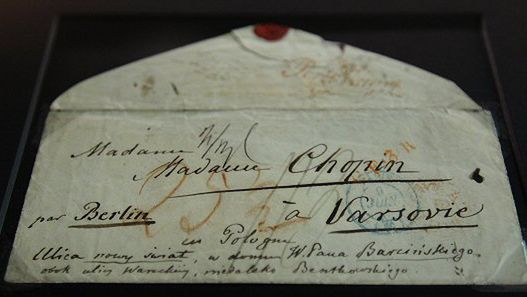 Madame
Madame Chopin
par Berlin à Varsovie
en Pologne
Ulica nowy świat, w domu W. Pana Barcińskiego.
obok ulicy Wareckiej, niedaleko Bentkowskiego.